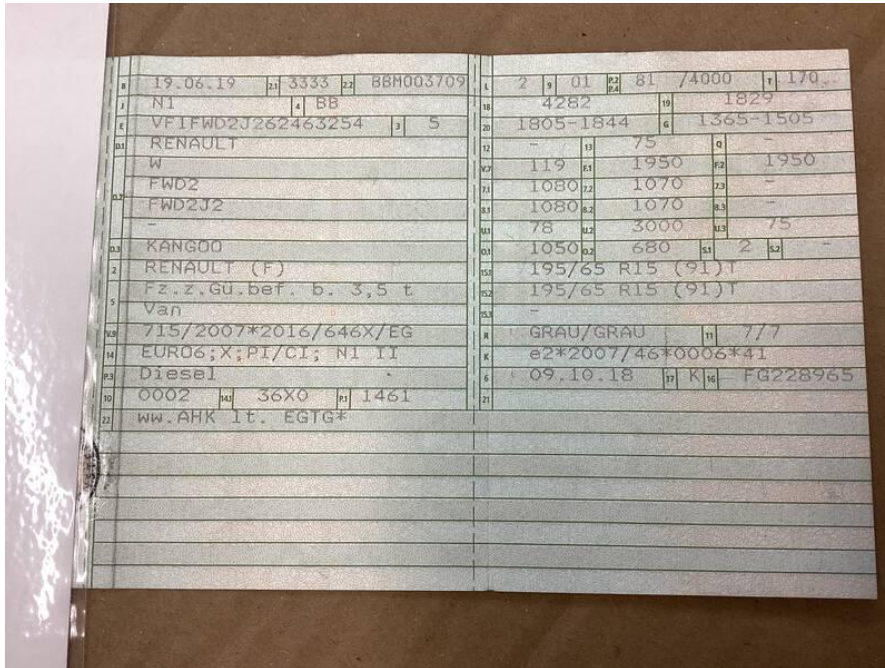 B 19.06.19 2.1 3333 2.2 BBM003709
J N1 4 BB
E VF1FWD2J262463254 3 5
D.1 RENAULT
W
FWD2
D.2 FWD2J2
-
D.3 KANGOO
2 RENAULT (F)
5 Fz.z.Gü.bef. b. 3,5 t
Van
V.9 715/2007*2016/646X/EG
14 EURO6;X;PI/CI; N1 II
P.3 Diesel
10 0002 14.1 36X0 P.1 1461
22 ww.AHK lt. EGTG*
L 2 9 01 P.2 P.4 81 /4000 T 170
18 4282 19 1829
20 1805-1844 G 1365-1505
12 - 13 75 Q -
V.7 119 F.1 1950 F.2 1950
7.1 1080 7.2 1070 7.3 -
8.1 1080 8.2 1070 8.3 -
U.1 78 U.2 3000 U.3 75
O.1 1050 O.2 680 S.1 2 S.2 -
15.1 195/65 R15 (91)T
15.2 195/65 R15 (91)T
15.3 -
R GRAU/GRAU 11 7/7
K e2*2007/46*0006*41
6 09.10.18 17 K 16 FG228965
21